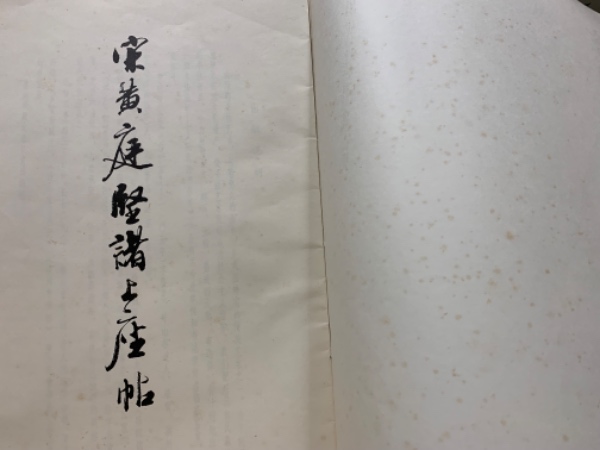 宋黄庭堅諸上座帖